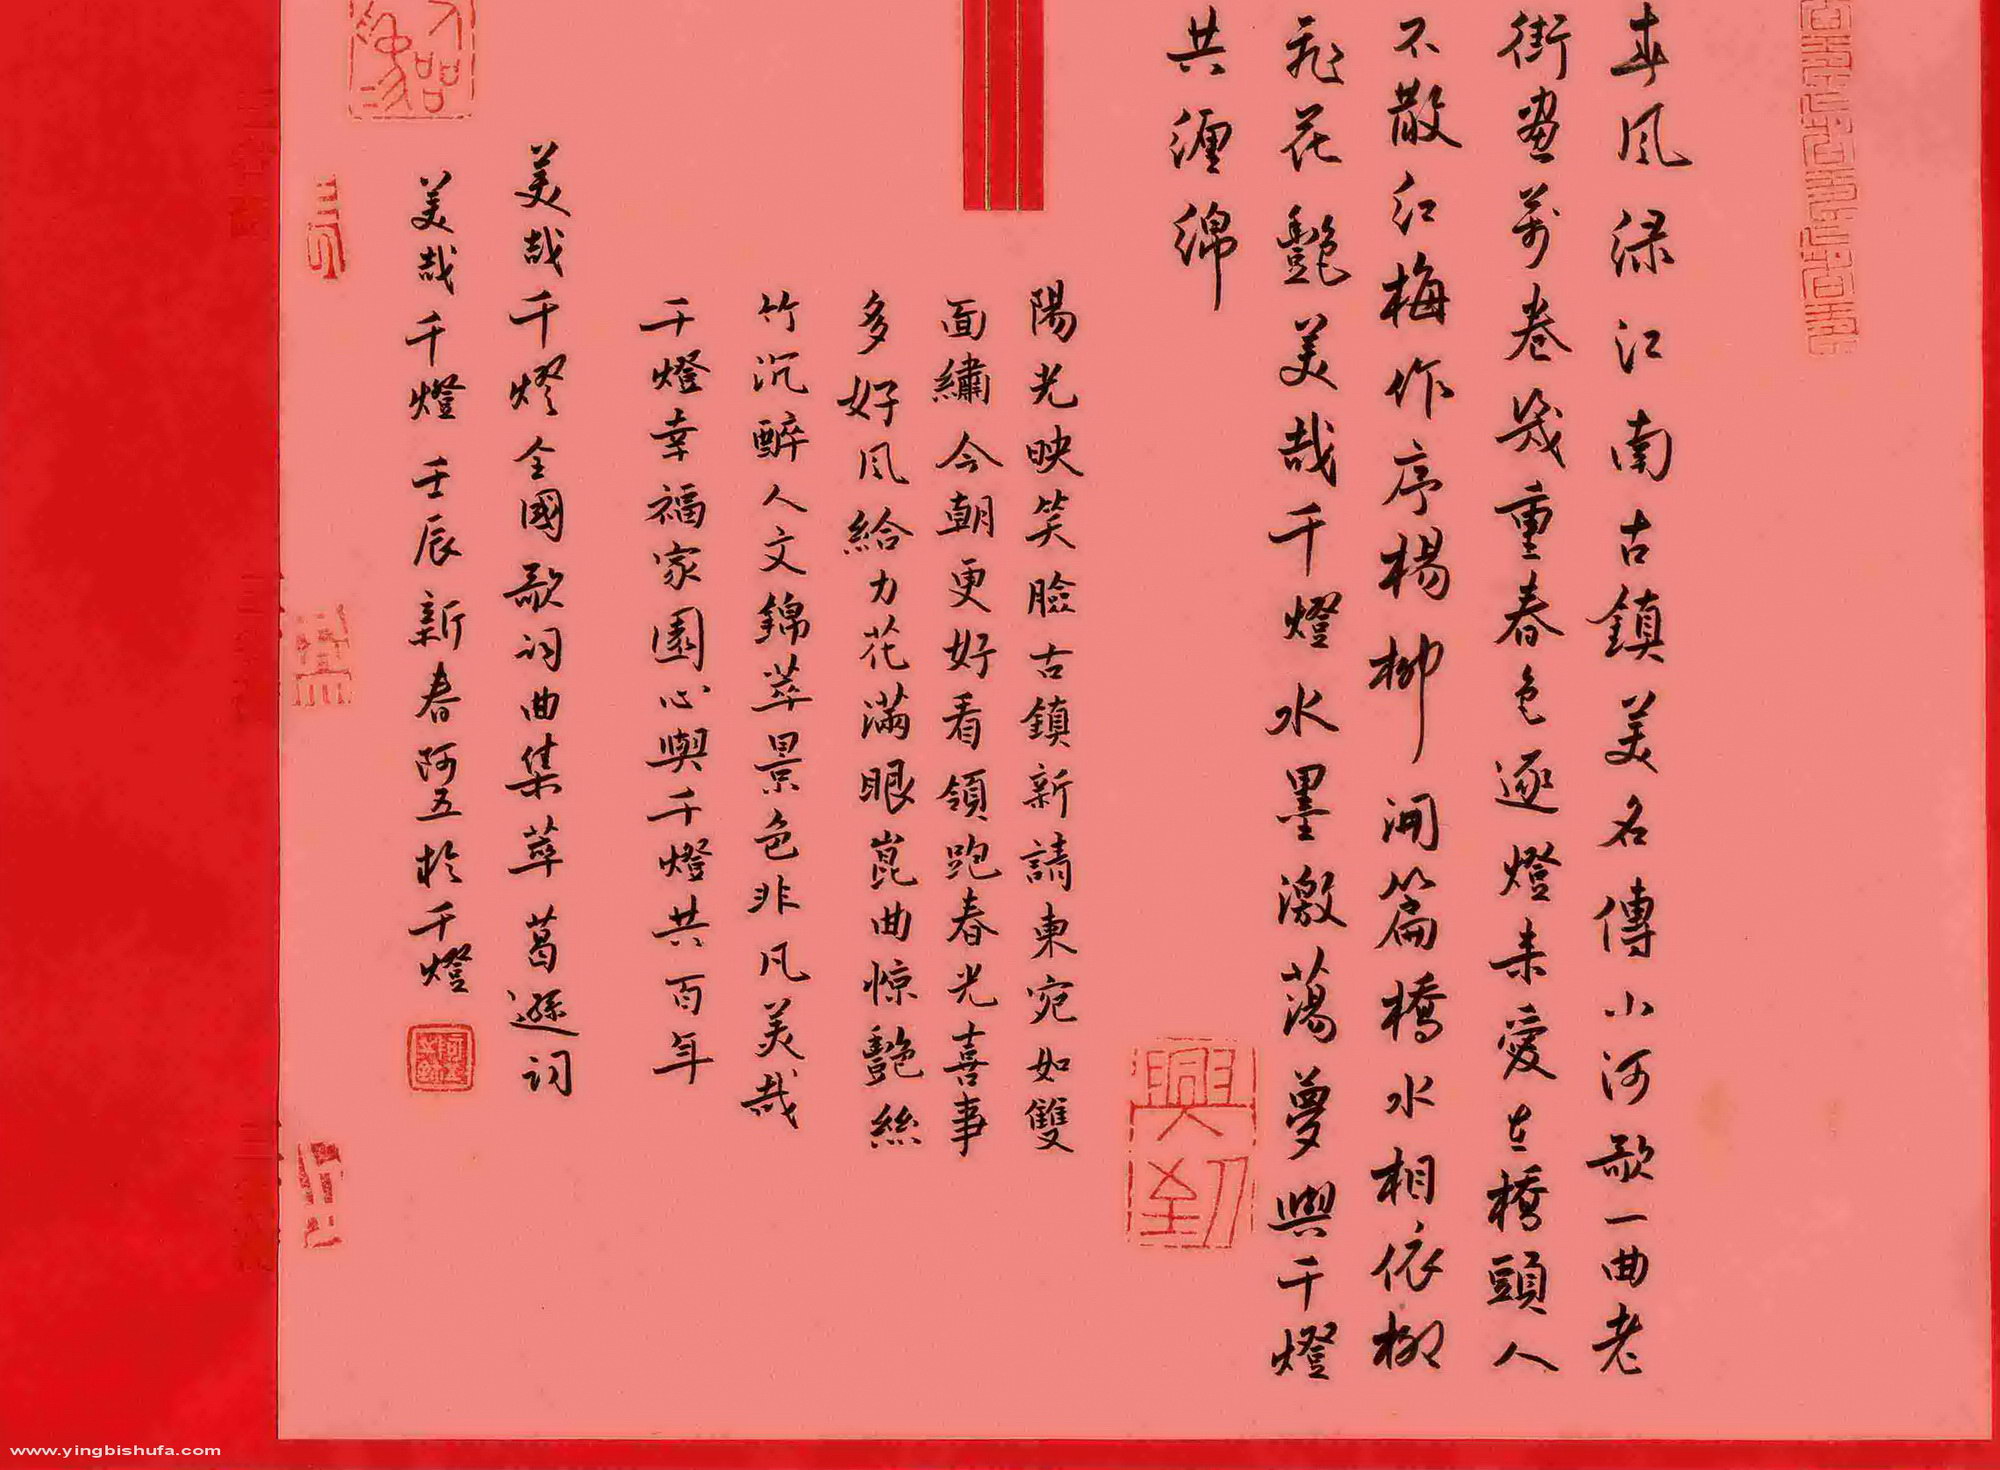 春风绿江南古鎮美名傳小河歌一曲老
街畫萬卷幾重春色逐燈来愛在橋頭人
不散红梅作序楊柳開篇橋水相依柳
飛花艷美哉千燈水墨激蕩夢與千燈
共缠绵
陽光映笑臉古鎮新請東宛如雙
面繡今朝更好看領跑春光喜事
多好风給力花滿眼崑曲惊艷絲
竹沉醉人文錦萃景色非凡美哉
千燈幸福家園心與千燈共百年
美哉千燈全國歌词曲集萃葛遜词
美哉千燈壬辰新春阿五於千燈
興到
www.yingbishufa.com